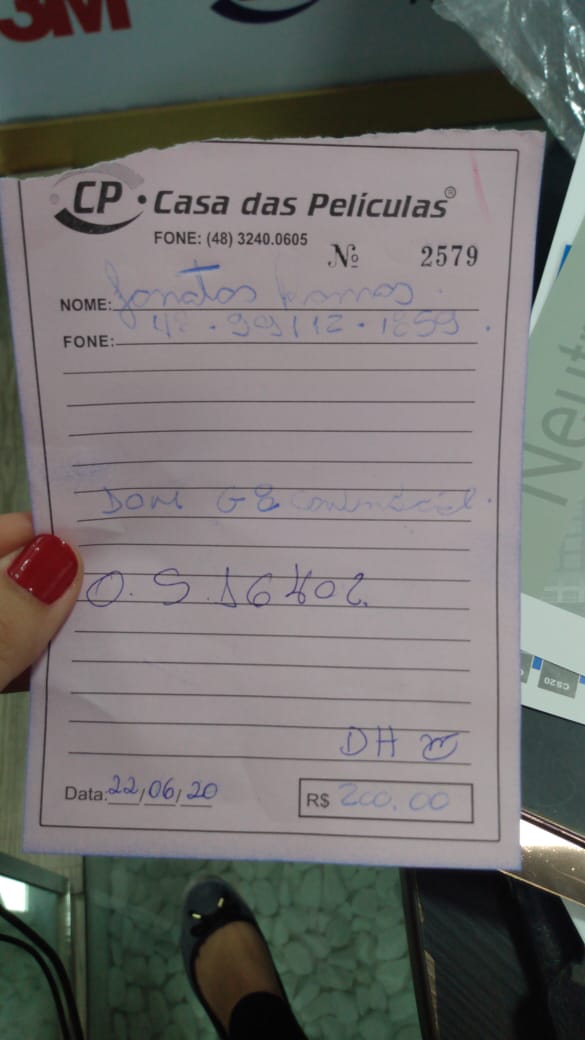 3M
CP · Casa das Películas®
FONE: (48) 3240.0605
Nº 2579
NOME: Jonatas Ramos
FONE: 48 . 99112 . 1859 .
G8
O. S. 16402.
DH
Data: 22/06/20
R$ 200,00
Neut
CS20